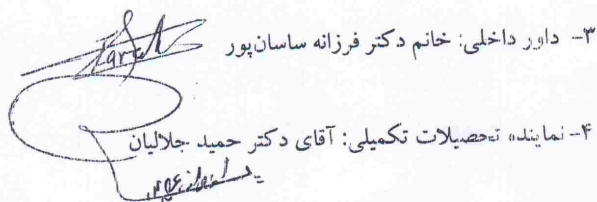 ۳- داور داخلی: خانم دکتر فرزانه ساسان‌پور
۴- نماینده تحصیلات تکمیلی: آقای دکتر حمید جلالیان